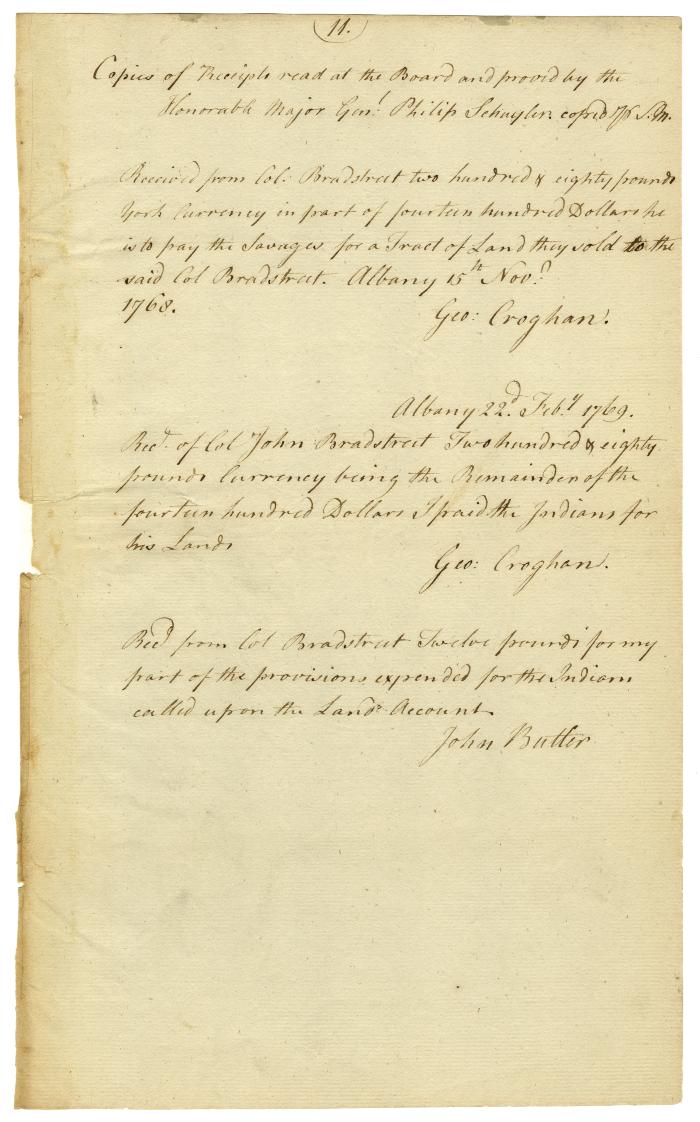 11.
Copies of Receipts read at the Board and proved by the
Honorable Major Genl. Philip Schuyler. copied pr S.M.
Received from Col: Bradstreet two hundred & eighty pounds
York Currency in part of fourteen hundred Dollars he
is to pay the Savages for a Tract of Land they sold to the
said Col Bradstreet. Albany 15th Novr.
1768.
Geo: Croghan.
Albany 22d. Feby. 1769.
Recd. of Col John Bradstreet Two hundred & eighty
pounds Currency being the Remainder of the
fourteen hundred Dollars I paid the Indians for
his Lands
Geo: Croghan.
Recd from Col Bradstreet Twelve pounds for my
part of the provisions expended for the Indians
called upon the Lands Account
John Butler